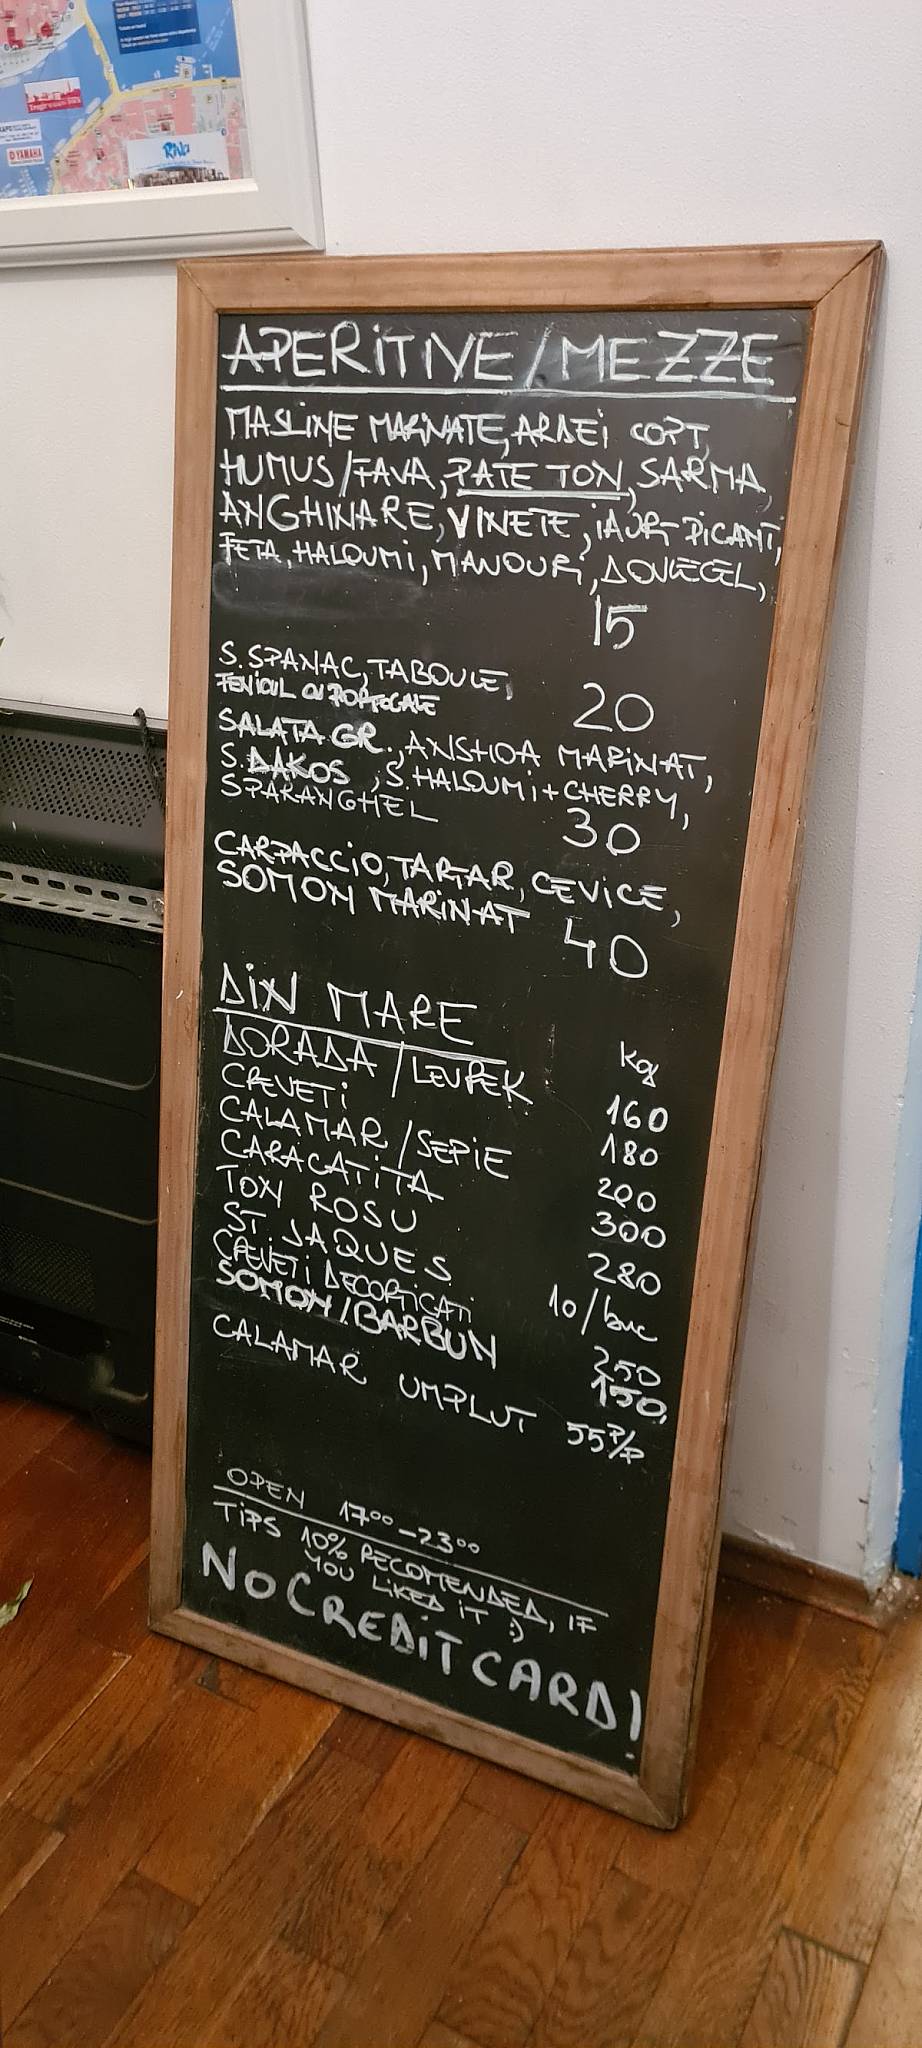 Trogir
YAMAHA
Riva
APERITIVE/MEZZE
MASLINE MARINATE, ARDEI COPT,
HUMUS/FAVA, PATE TON, SARMA,
ANGHINARE, VINETE, IAURT PICANT,
FETA, HALOUMI, MANOURI, DOVLECEL,
15
S. SPANAC, TABOULE,
FENICUL CU PORTOCALE
20
SALATA GR., ANSHOA MARINAT,
S. DAKOS, S. HALOUMI + CHERRY,
SPARANGHEL
30
CARPACCIO, TARTAR, CEVICE,
SOMON MARINAT
40
DIN MARE
Kg
DORADA/LEUPEK 160
CREVETI 180
CALAMAR/SEPIE 200
CARACATITA 300
TON ROSU 280
ST JAQUES 10/buc
CREVETI DECORTICATI 250
SOMON/BARBUN 150,
CALAMAR UMPLUT 55 P/P
OPEN 17⁰⁰-23⁰⁰
TIPS 10% RECOMENDED, IF
YOU LIKED IT :)
NO CREDIT CARD!